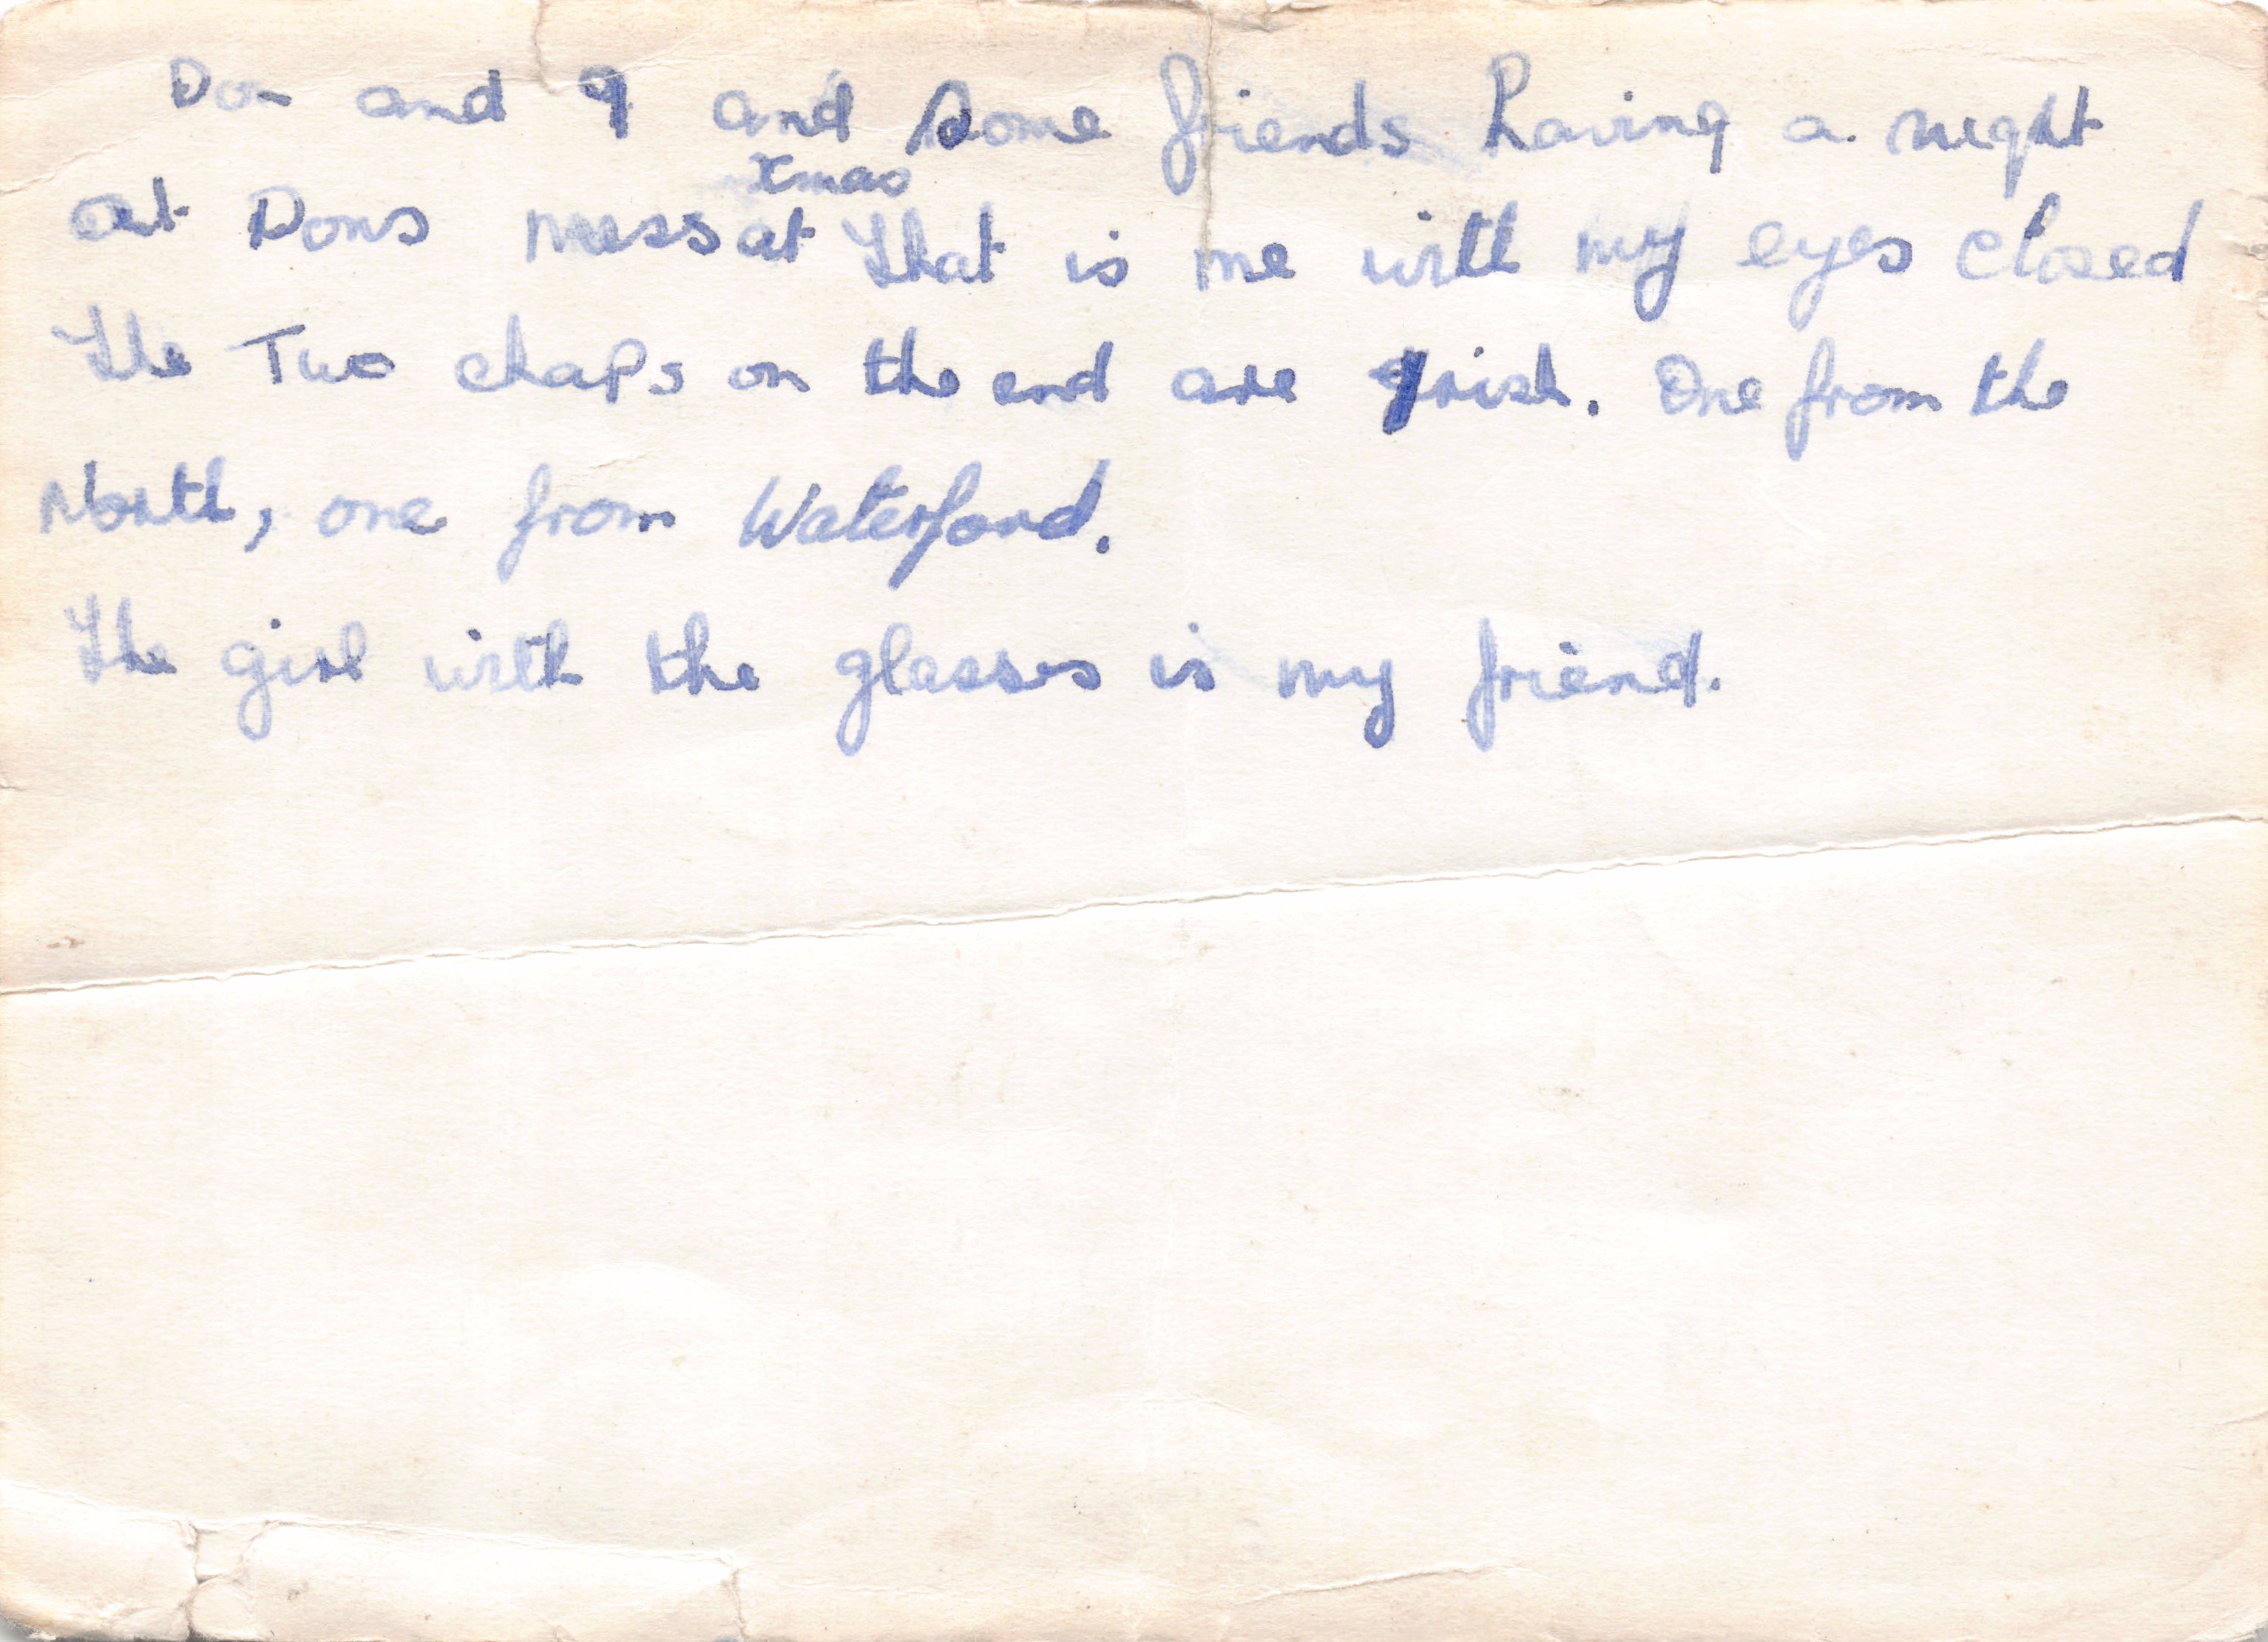 Don and I and some friends having a night
at Dons mess at xmas That is me with my eyes closed
The Two chaps on the end are Irish. One from the
North, one from Waterford.
The girl with the glasses is my friend.